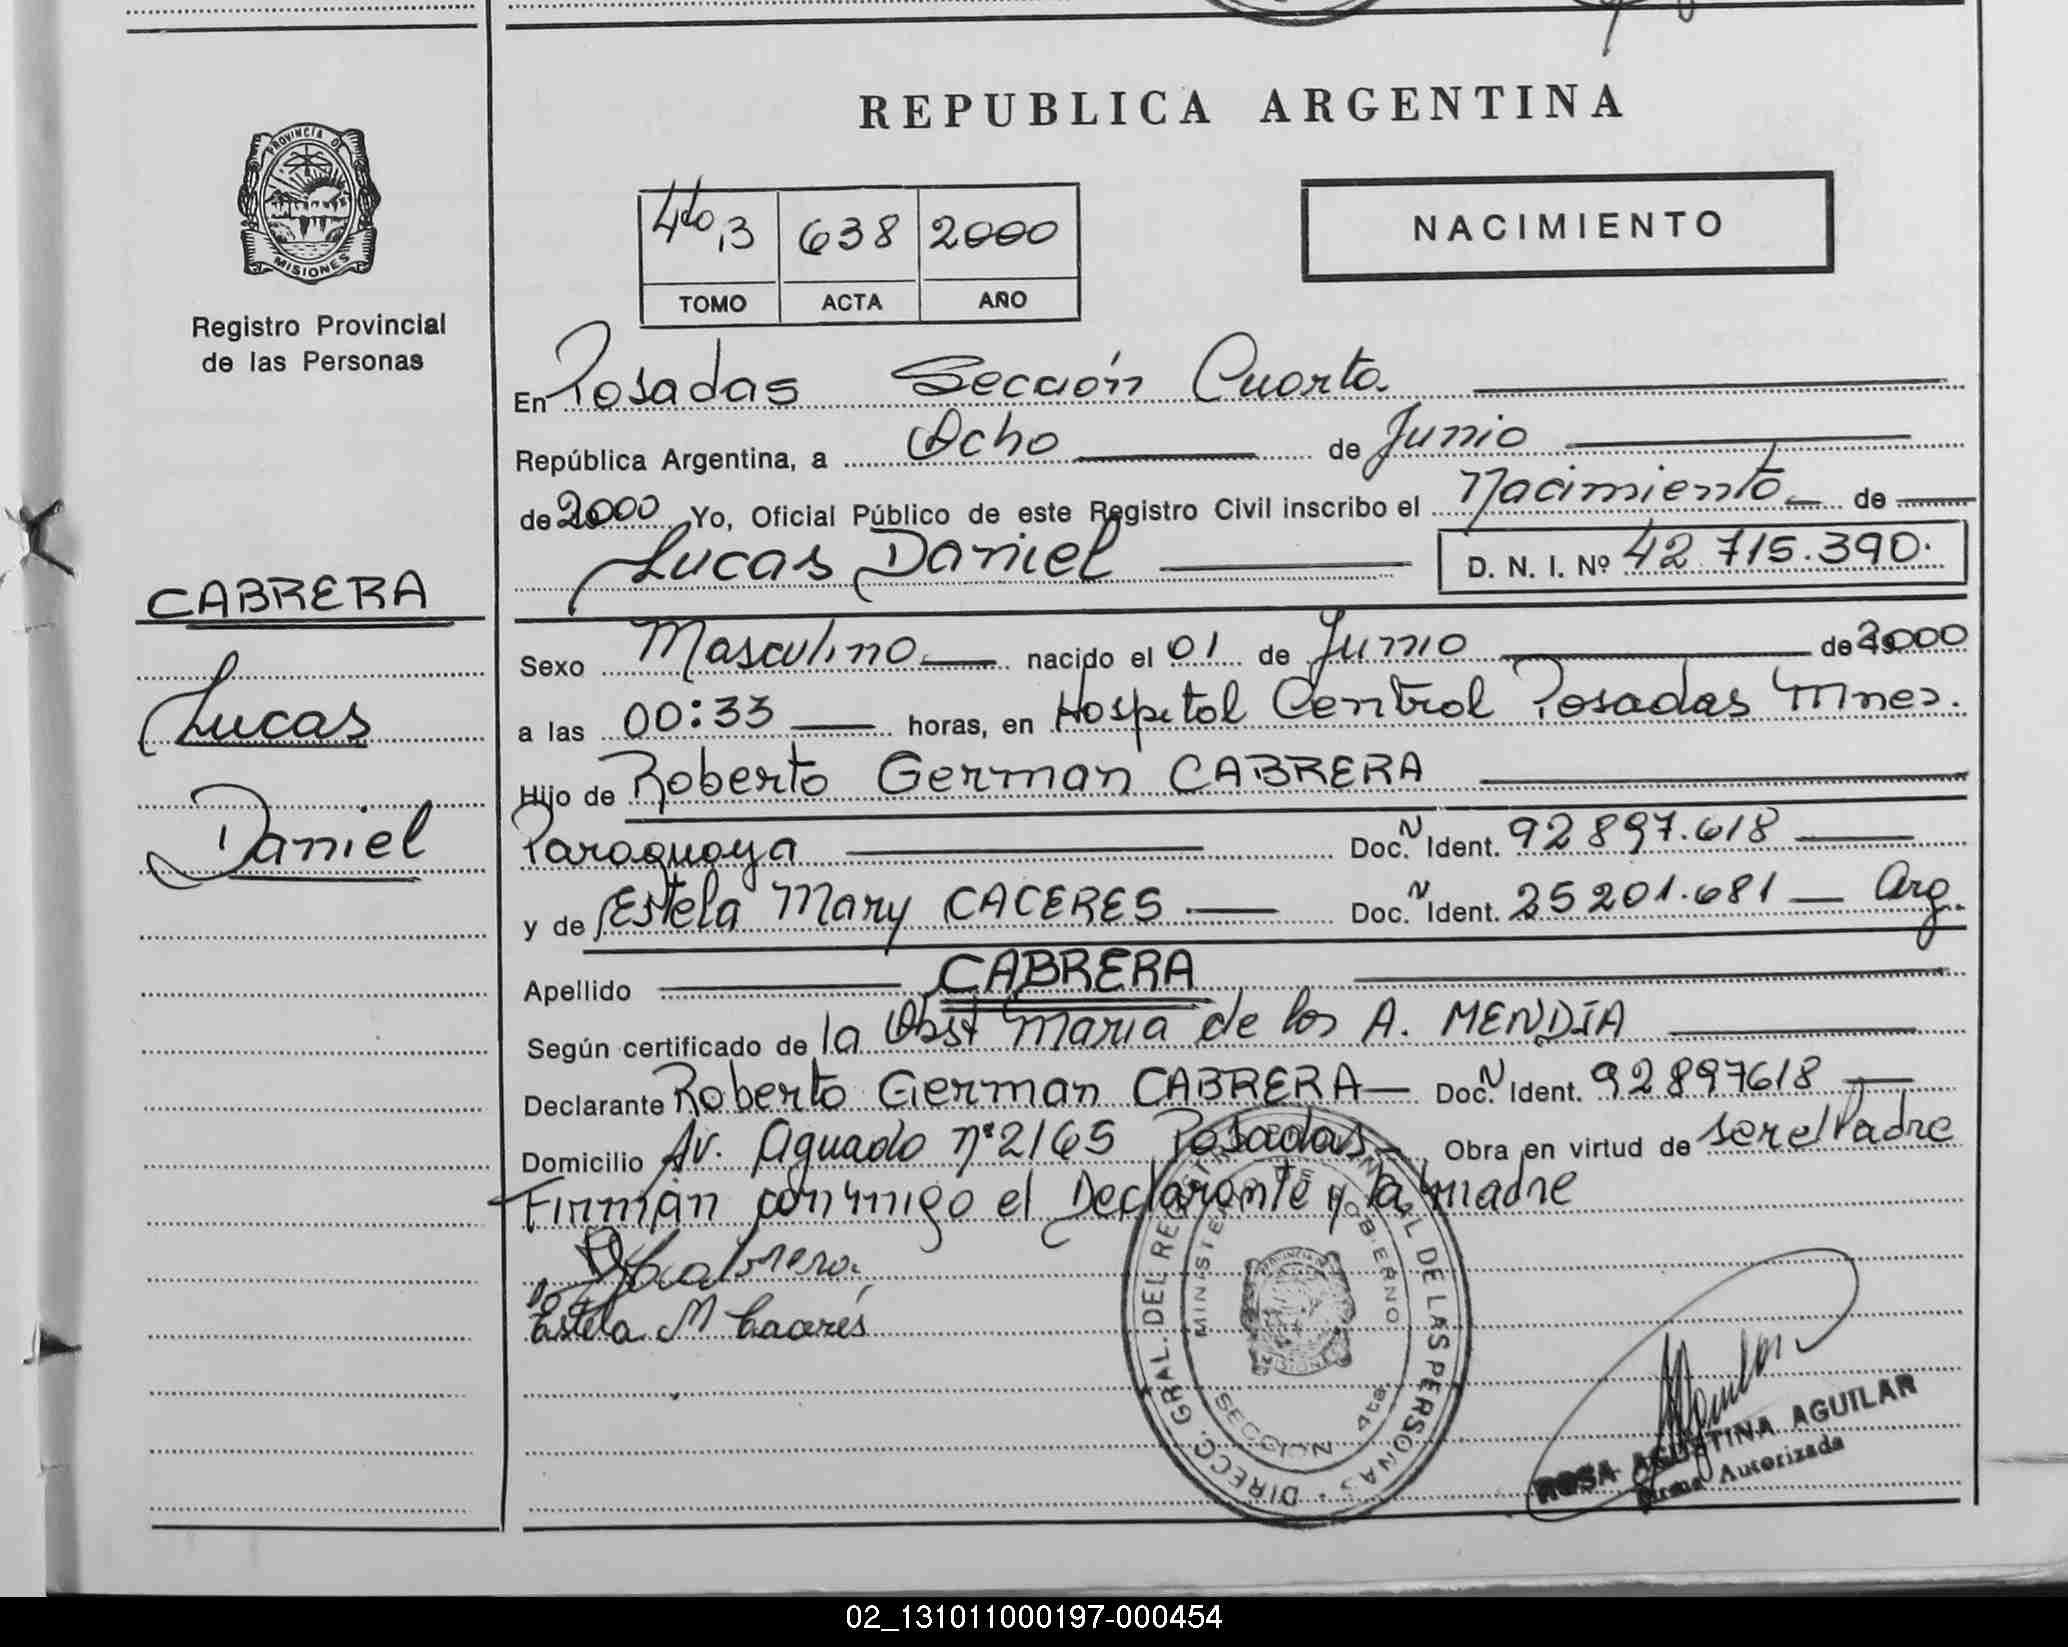 REPUBLICA ARGENTINA
PROVINCIA DE
MISIONES
Registro Provincial
de las Personas
4to, 3 638 2000
TOMO ACTA AÑO
NACIMIENTO
En Posadas Sección Cuarta
República Argentina, a Ocho de Junio
de 2000 Yo, Oficial Público de este Registro Civil inscribo el Nacimiento de
Lucas Daniel D. N. I. Nº 42.715.390.
CABRERA
Lucas
Daniel
Sexo Masculino nacido el 01 de Junio de 2000
a las 00:33 horas, en Hospital Central Posadas Mnes.
Hijo de Roberto German CABRERA
Paraguaya Doc. N Ident. 92 897.618
y de Estela Mary CACERES Doc. N Ident. 25 201.681 Arg.
Apellido CABRERA
Según certificado de la Obst Maria de los A. MENDÍA
Declarante Roberto German CABRERA Doc. N Ident. 92897618
Domicilio Av. Aguado nº 2165 Posadas Obra en virtud de ser el Padre
Firman conmigo el Declarante y la madre
Estela M Caceres
DIRECC. GRAL. DEL REGISTRO PROVINCIAL DE LAS PERSONAS
MINISTERIO DE GOBIERNO
PROVINCIA
MISIONES
SECCION 4ta
ROSA AGUSTINA AGUILAR
Firma Autorizada
02_131011000197-000454